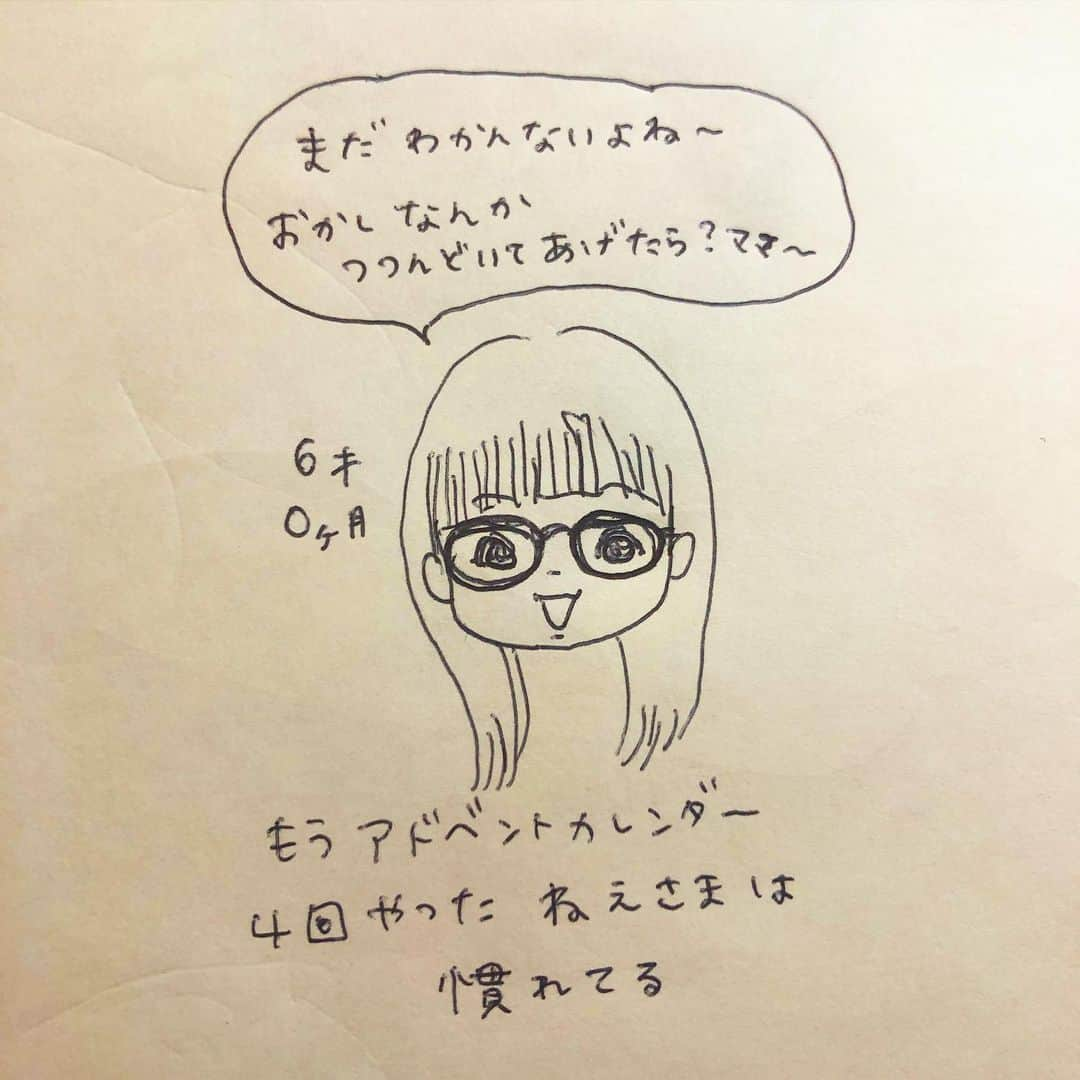 まだわかんないよね～
おかしなんか
つつんどいてあげたら?ママ～
6才
0ヶ月
もうアドベントカレンダー
4回やったねえさまは
慣れてる